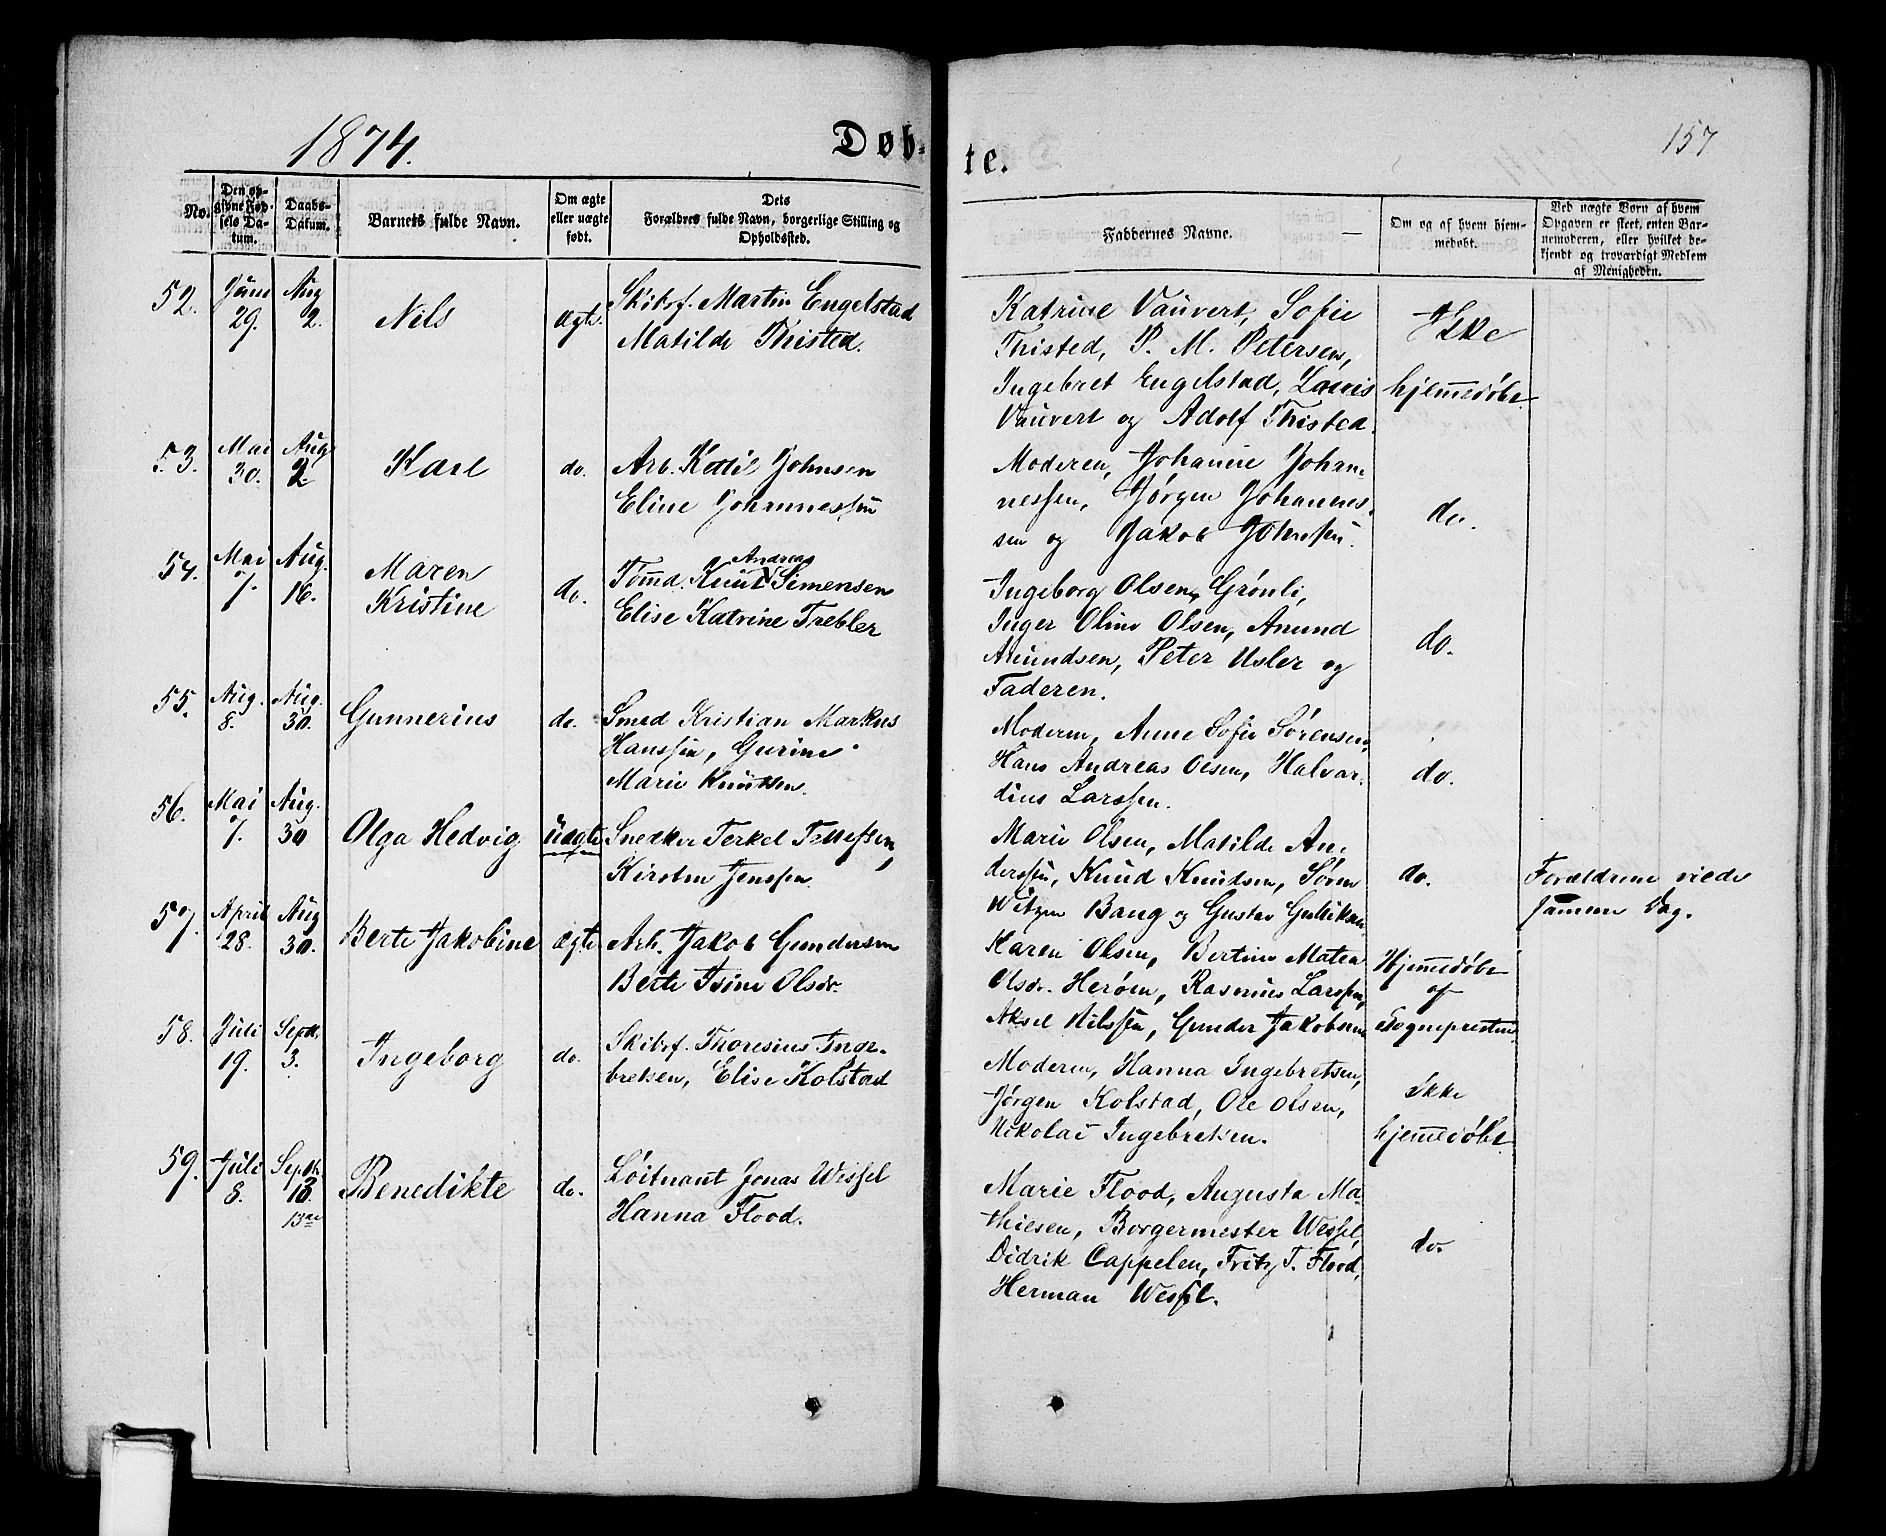 1874.
Døb-
te.
157
No.
Den op-
givne Fød-
sels Da-
tum.
Daabs-
Datum.
Barnets fulde Navn.
Om ægte
eller uægte
født.
Dets
Forældres fulde Navn, borgerlige Stilling og
Opholdssted.
Faddernes Navne.
Om og af hvem hjem-
medøbt.
Ved uægte Børn af hvem
Opgaven er skeet, enten Bar-
nemoderen, eller hvilket be-
kjendt og troværdigt Medlem
af Menigheden.
52.
Juni
29.
Aug
2.
Nils
ægte.
Skibsf. Martin Engelstad
Matilde Thisted.
Katrine Vauvert, Sofie
Thisted, P. M. Petersen,
Ingebret Engelstad, Louis
Vauvert og Adolf Thisted.
Ikke
hjemedøbt.
53.
Mai
30.
Aug
2.
Karl
do.
Arb. Kettil Johnsen
Eline Johannessen
Moderen, Johanne Johan-
nessen, Jørgen Johannes-
sen og Jakob Johnsen.
do.
54.
Mai
7.
Aug.
16.
Maren
Kristine
do.
Tømd. Knut Andreas Simensen
Elise Katrine Trebler
Ingeborg Olsen, Grønli,
Inger Oline Olsen, Anund
Anundsen, Peter Usler og
Faderen.
do.
55.
Aug.
8.
Aug.
30.
Gunnerius
do.
Smed Kristian Markus
Hanssen, Gurine
Marie Knutsen.
Moderen, Anne Sofie Sørensen,
Hans Andreas Olsen, Halvar-
dius Larssen.
do.
56.
Mai
7.
Aug.
30
Olga Hedvig
uægte
Snedker Terkel Tellefsen,
Kirsten Jenssen.
Marie Olsen, Matilde An-
derssen, Knud Knudsen, Søren
Witzen Bang og Gustav Gulliksen
do.
Forældrene viede
samme Dag.
57.
April
28.
Aug
30.
Berte Jakobine
ægte
Arb. Jakob Gundersen
Berte Isine Olsdr.
Karen Olsen, Bertine Matea
Olsdr. Herøen, Rasmus Larssen,
Aksel Nilssen, Gunder Jakobsen
Hjemedøbt
af
Sognepresten
58.
Juli
19.
Septr.
3.
Ingeborg
do.
Skibsf. Thoresius Inge-
bretsen, Elise Kolstad
Moderen, Hanna Ingebretsen,
Jørgen Kolstad, Ole Olsen,
Nikolai Ingebretsen.
Ikke
hjemedøbt.
59.
Juli
8.
Septbr.
13.
13de
Benedikte
do.
Løitnant Jonas Wessel
Hanna Flood.
Marie Flood, Augusta Ma-
thiesen, Borgermester Wessel,
Didrik Cappelen, Fritz T. Flood,
Herman Wessel.
do.